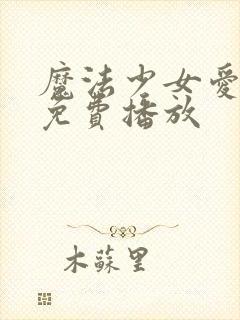 魔法少女愛
免費播放
木蘇里